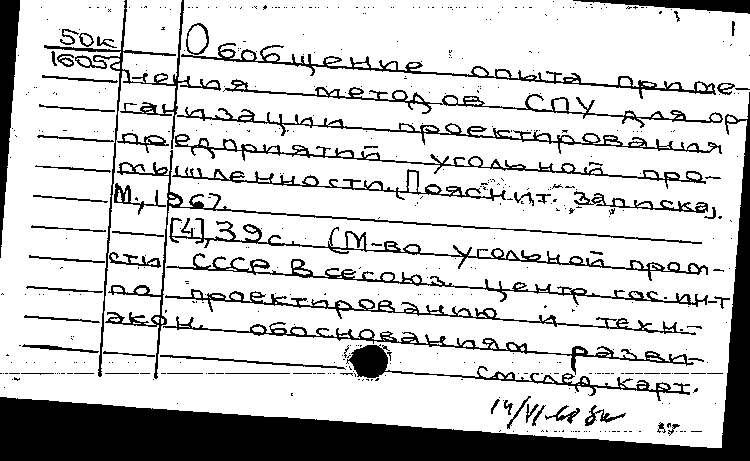 1
50к Обобщение опыта приме-
16052 нения методов СПУ для ор
ганизации проектирования
предприятий угольной про-
мышленности. (Пояснит. записка).
М., 1967.
[4], 39 с. (М-во угольной пром-
сти СССР. Всесоюз. центр. гос. ин-т
по проектированию и техн.-
экон. обоснованиям разви-
см. след. карт.
14/VI-68